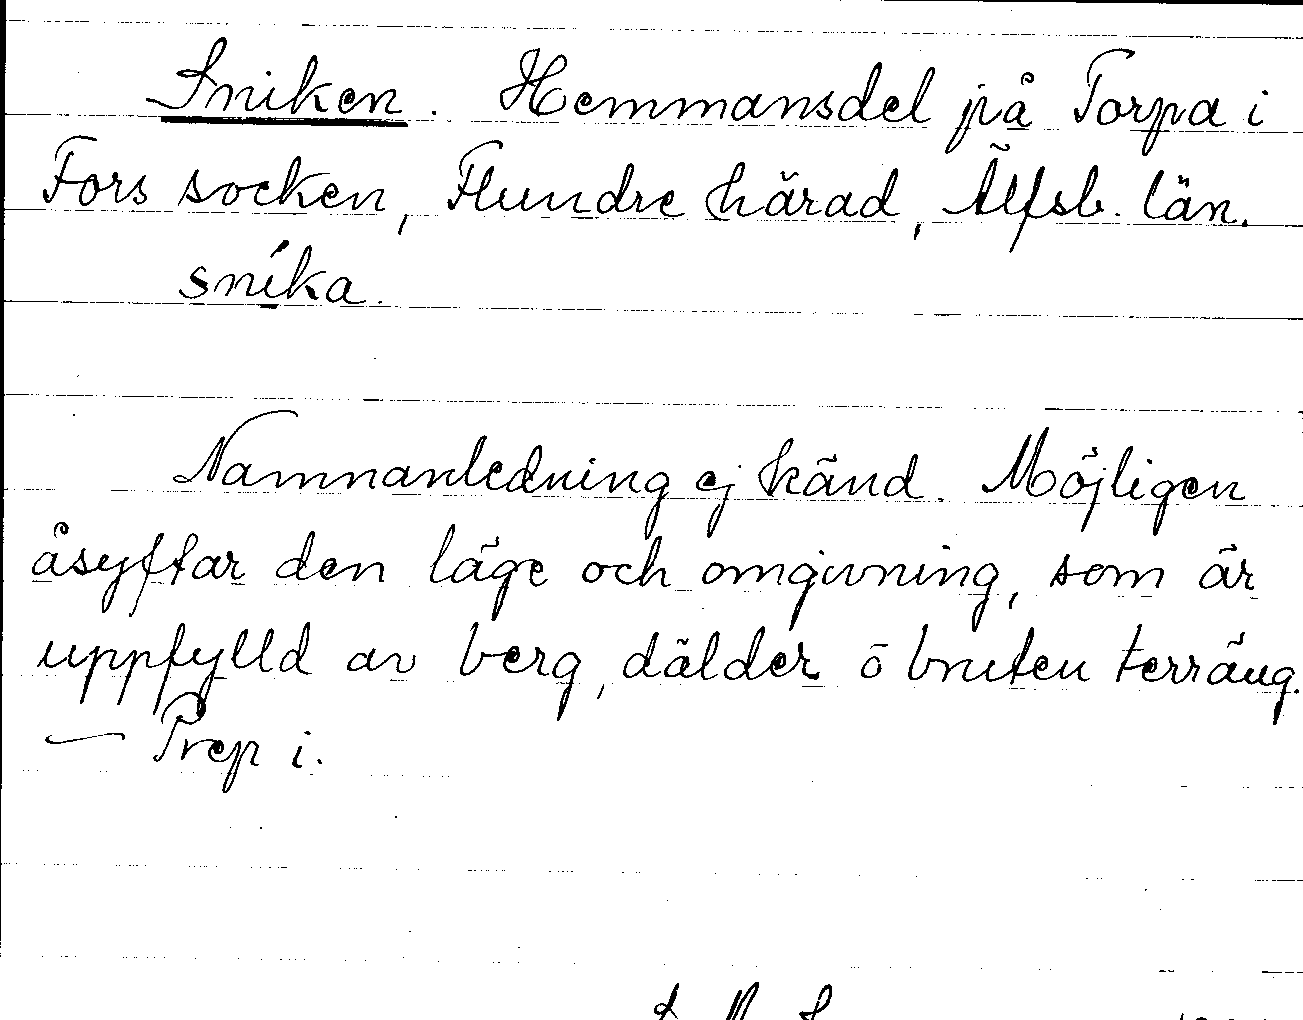 Sniken. Hemmansdel på Torpa i
Fors socken, Flundre härad, Älfsb. län.
sníka.
Namnanledning ej känd. Möjligen
åsyftar den läge och omgivning, som är
uppfylld av berg, dälder o bruten terräng.
— Prep i.